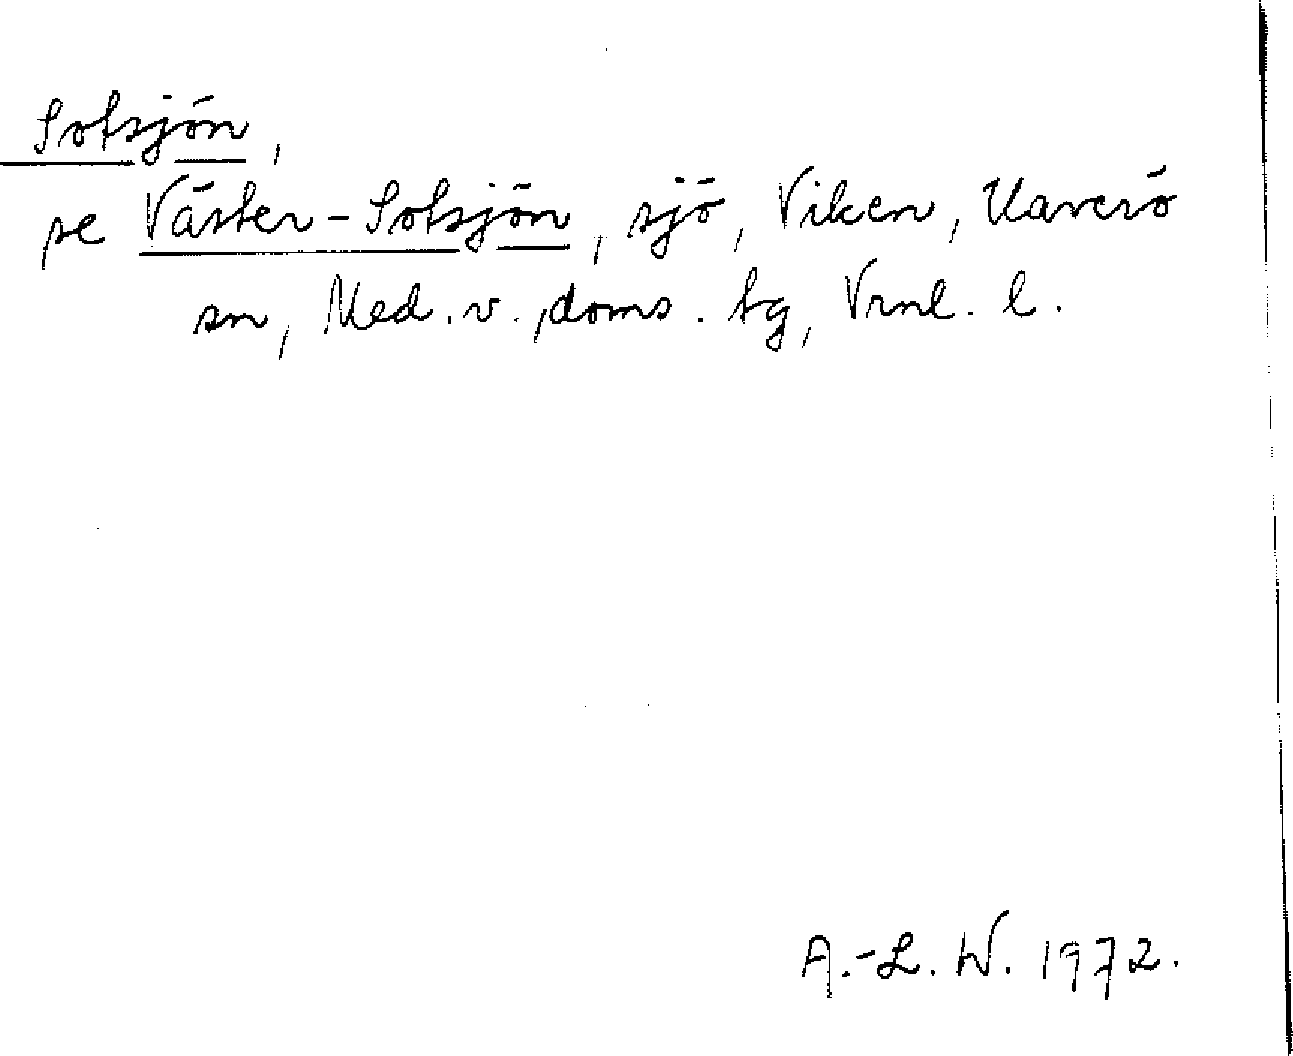 Sotsjön,
se Väster-Sotsjön, sjö, Viken, Naverö
sn, Med. v., doms. tg, Vrnl. l.
A.-L. W. 1972.